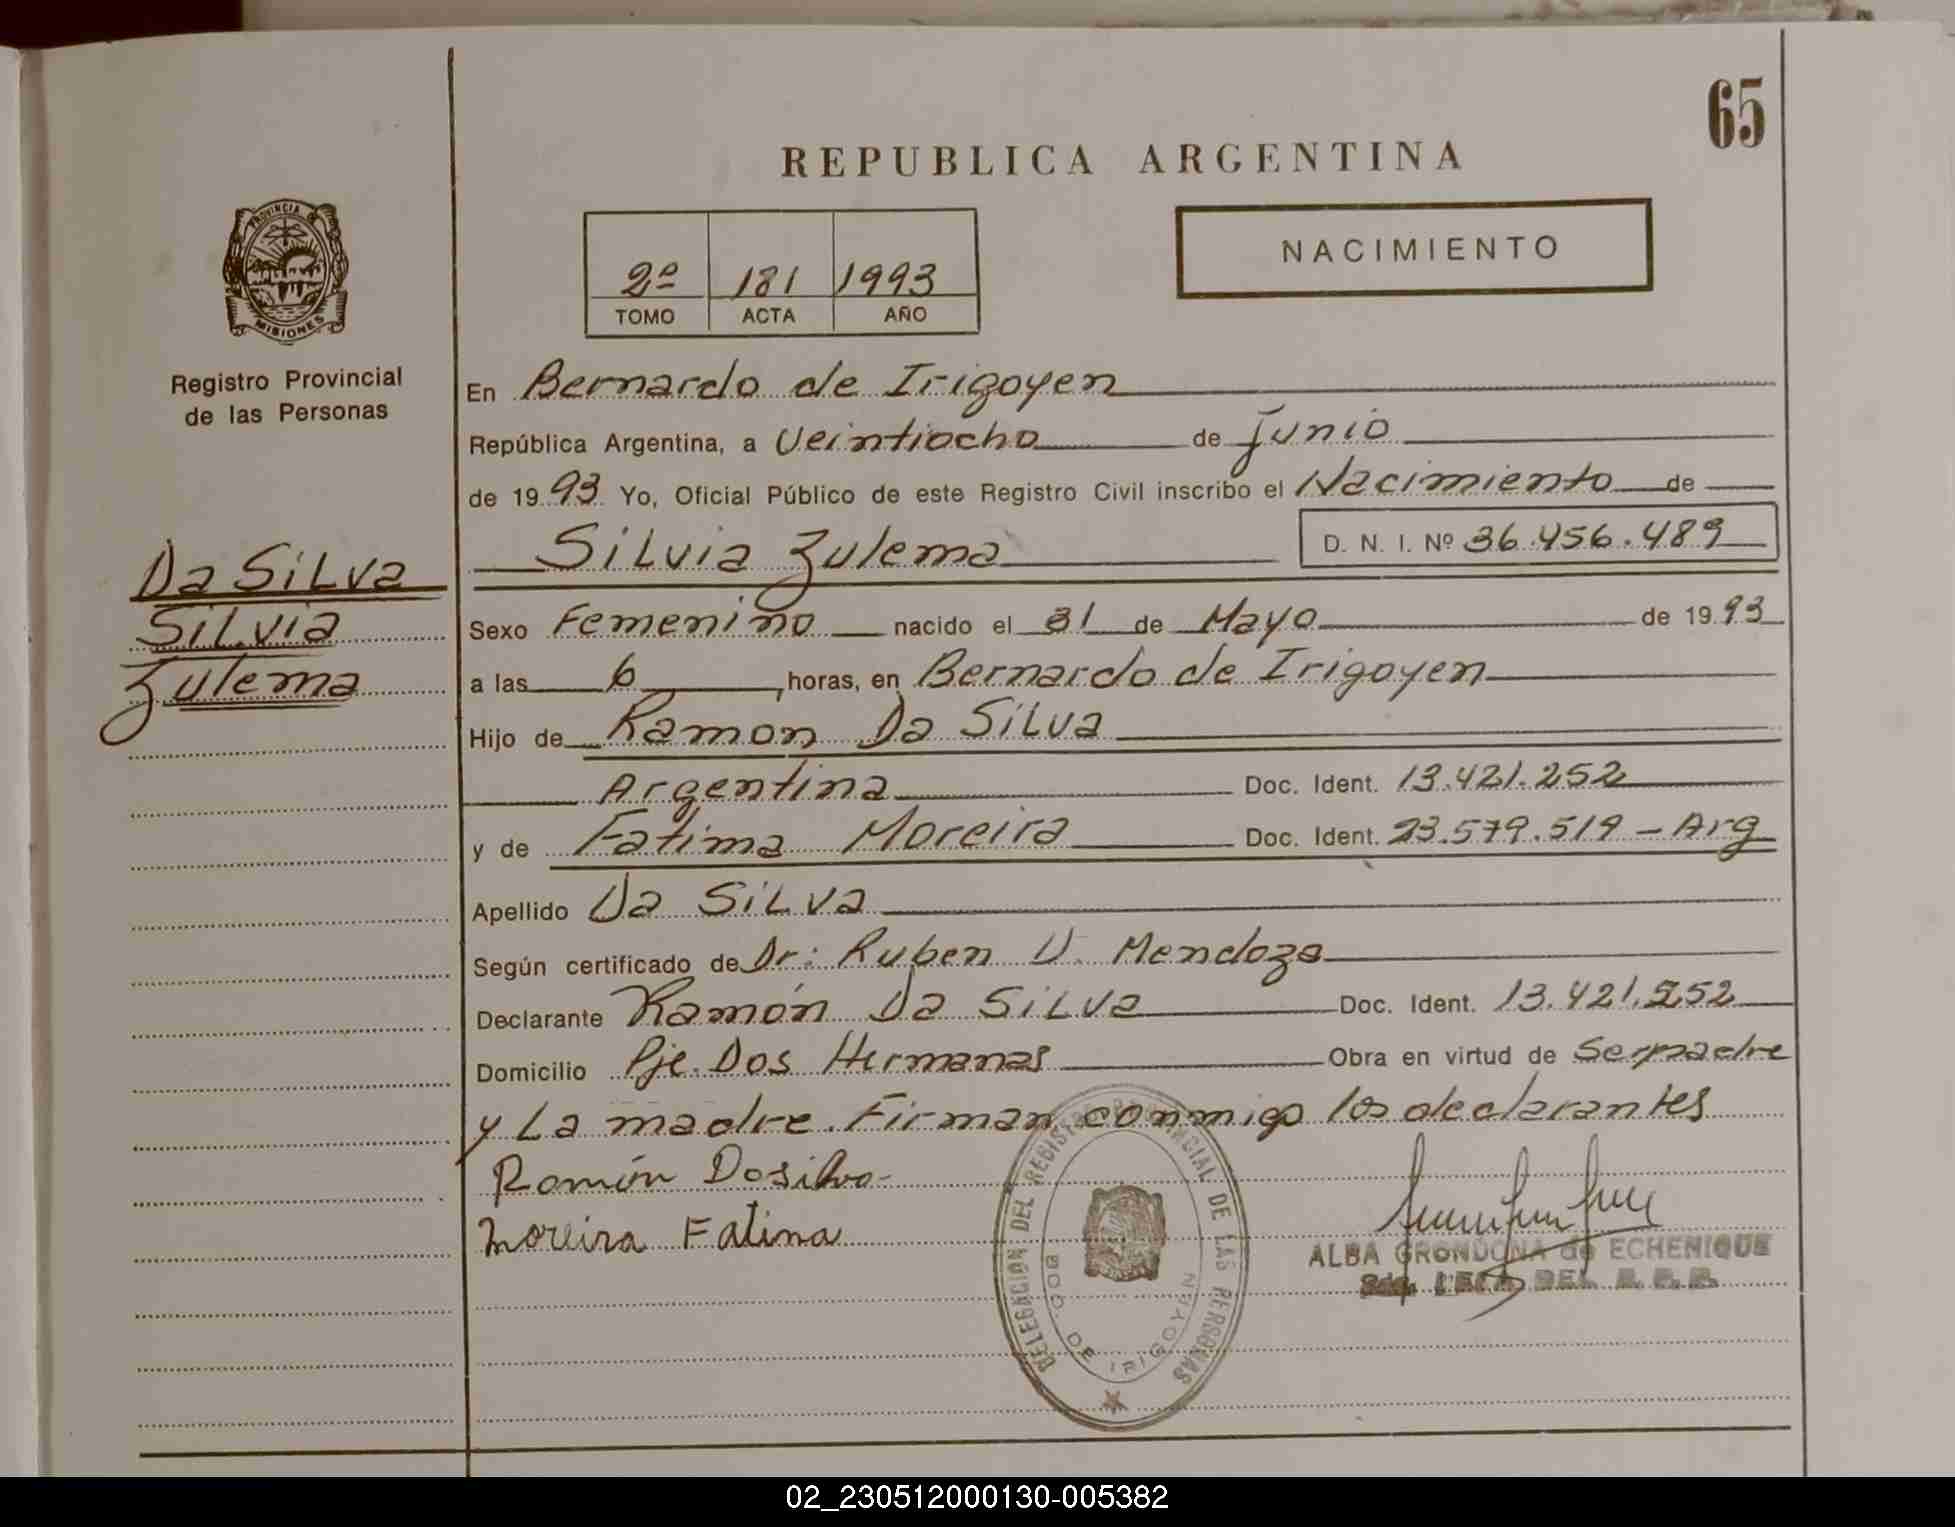 65
REPUBLICA ARGENTINA
PROVINCIA DE
MISIONES
Registro Provincial
de las Personas
2º 181 1993
TOMO ACTA AÑO
NACIMIENTO
En Bernardo de Irigoyen
República Argentina, a Veintiocho de junio
de 19 93 Yo, Oficial Público de este Registro Civil inscribo el Nacimiento de
Silvia Zulema D. N. I. Nº 36.456.489
Da Silva
Silvia
Zulema
Sexo Femenino nacido el 31 de Mayo de 19 93
a las 6 horas, en Bernardo de Irigoyen
Hijo de Ramon Da Silva
Argentina Doc. Ident. 13.421.252
y de Fatima Moreira Doc. Ident. 23.579.519 - Arg
Apellido Da Silva
Según certificado de Dr: Ruben D. Mendoza
Declarante Ramón Da Silva Doc. Ident. 13.421.252
Domicilio Pje. Dos Hermanas Obra en virtud de Ser padre
y La madre. Firman conmigo los declarantes
Ramón Dasilva
Moreira Fatima
DELEGACION DEL REGISTRO PROVINCIAL DE LAS PERSONAS
BDO. DE IRIGOYEN
ALBA GRONDONA de ECHENIQUE
DEL R. P. P.
02_230512000130-005382